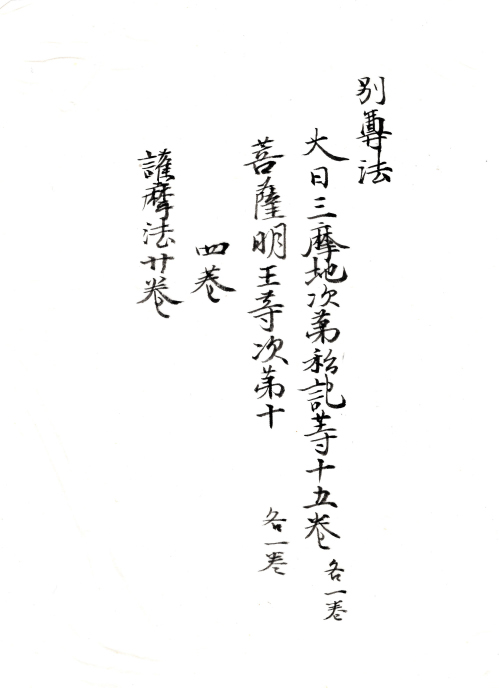 別尊法
大日三摩地次第私記等十五巻 各一巻
菩薩明王等次第十 各一巻
四巻
護摩法廿巻